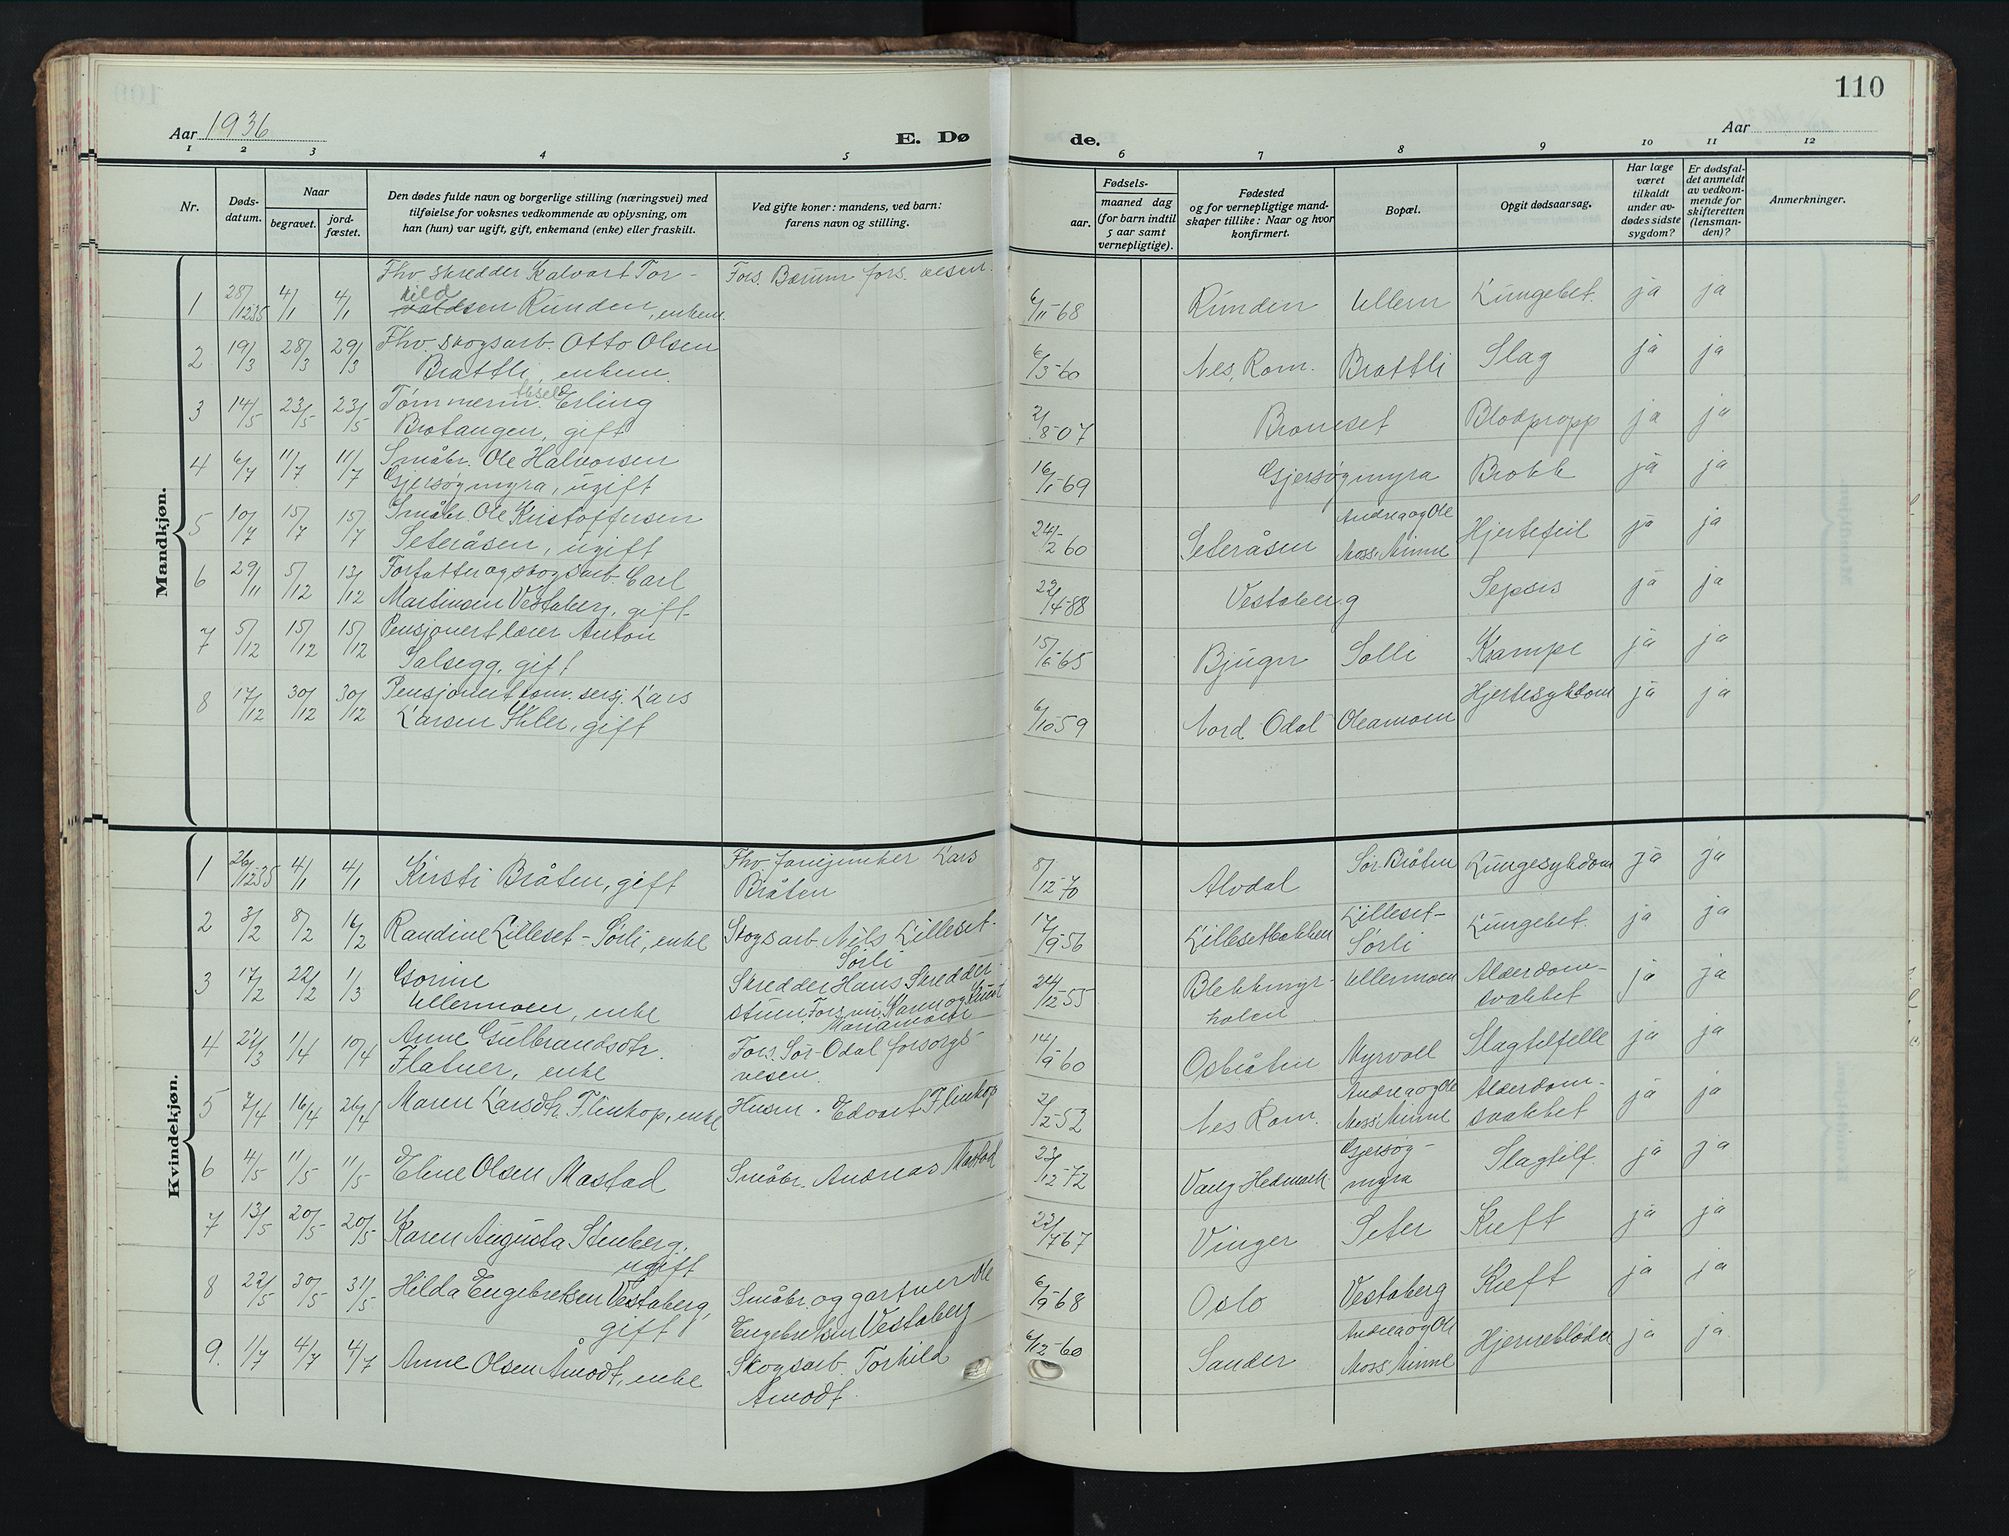 110
Aar 1936
E. Dø
de.
Aar
1 2 3 4 5 6 7 8 9 10 11 12
Nr.
Døds-
datum.
Naar
begravet.
jord-
fæstet.
Den dødes fulde navn og borgerlige stilling (næringsvei) med
tilføielse for voksnes vedkommende av oplysning, om
han (hun) var ugift, gift, enkemand (enke) eller fraskilt.
Ved gifte koner: mandens, ved barn:
farens navn og stilling.
Fødsels-
aar.
maaned dag
(for barn indtil
5 aar samt
vernepligtige).
Fødested
og for vernepligtige mand-
skaper tillike: Naar og hvor
konfirmert.
Bopæl.
Opgit dødsaarsag.
Har læge
været
tilkaldt
under av-
dødes sidste
sygdom?
Er dødsfal-
det anmeldt
av vedkom-
mende for
skifteretten
(lensman-
den)?
Anmerkninger.
Mandkjøn.
1 28/12 35 4/1 4/1 Fhv skredder Halvart Tor-
kild
valdsen Runden, enkem. Fors. Bærum fors. vesen. 6/11-68 Runden Ullern Lungebet. ja ja
2 19/3 28/3 29/3 Fhv skogsarb. Otto Olsen
Brattli, enkem. 6/3-60 Nes, Rom. Brattli Slag ja ja
3 14/5 23/5 23/5 Tømmerm. Erling
Brotangen, gift 2/8-07 Broneset Blodpropp ja ja
4 6/7 11/7 11/7 Småbr. Ole Halvorsen
Gjersøgmyra, ugift 16/1-69 Gjersøgmyra Brokk ja ja
5 10/7 15/7 15/7 Småbr. Ole Kristoffersen
Seteråsen, ugift 24/2-60 Seteråsen Andrea og Ole
Moss' Minne Hjertefeil ja ja
6 29/11 5/12 13/12 Forfatter og skogsarb. Carl
Martinsen Vestaberg, gift 22/4-88 Vestaberg Sepsis ja ja
7 5/12 15/12 15/12 Pensjonert lærer Anton
Salsegg, gift 15/6-65 Bjugn Solli Krampe ja ja
8 17/12 30/12 30/12 Pensjonert kom. sersj. Lars
Larsen Skler, gift 6/10 59 Nord Odal Oleamoen Hjertesykdom ja ja
Kvindekjøn.
1 26/12 35 4/1 4/1 Kirsti Bråten, gift Fhv fanejunker Lars
Bråten 8/12-70 Alvdal Sør-Bråten Lungesykdom ja ja
2 3/2 8/2 16/2 Randine Lilleset-Sørli, enke Skogsarb. Nils Lilleset-
Sørli 17/9-56 Lillesetbakken Lilleset-
Sørli Lungebet. ja ja
3 17/2 22/2 1/3 Gorine
Ullermoen, enke Skredder Hans Skredder-
stuen. Fors. ved Karen og Knut
Mariamoen 24/12-55 Blekkmyr-
holen Ullermoen Alderdom-
svakhet ja ja
4 21/3 1/4 10/4 Anne Gulbrandsdtr.
Flatner, enke Fors. Sør-Odal forsorgs-
vesen. 14/9-60 Osbråten Myrvoll Slagtilfelle ja ja
5 7/4 16/4 26/4 Maren Larsdtr. Flinkop, enke Husm. Edvart Flinkop 2/2-52 Nes Rom. Andrea og Ole
Moss' Minne Alderdom-
svakhet ja ja
6 4/5 11/5 11/5 Eline Olsen Mastad Småbr. Andreas Mastad 23/12-72 Vang Hedmark Gjersøg-
myra Slagtilf. ja ja
7 13/5 20/5 20/5 Karen Augusta Stenberg,
ugift 22/7 67 Vinger Seter Kreft ja ja
8 22/5 30/5 31/5 Hilda Engebretsen Vestaberg,
gift Småbr. og gartner Ole
Engebretsen Vestaberg 6/9-68 Oslo Vestaberg Kreft ja ja
9. 1/7 4/7 4/7 Anne Olsen Åmodt, enke Skogsarb Torkild
Åmodt. 6/12-60 Sander Andrea og Ole
Moss' Minne Hjerneblødn ja ja